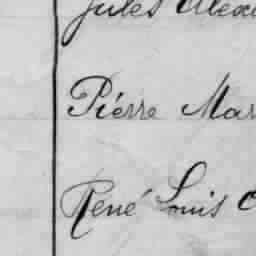 Jules Alex
Piérre Mar
René Louis